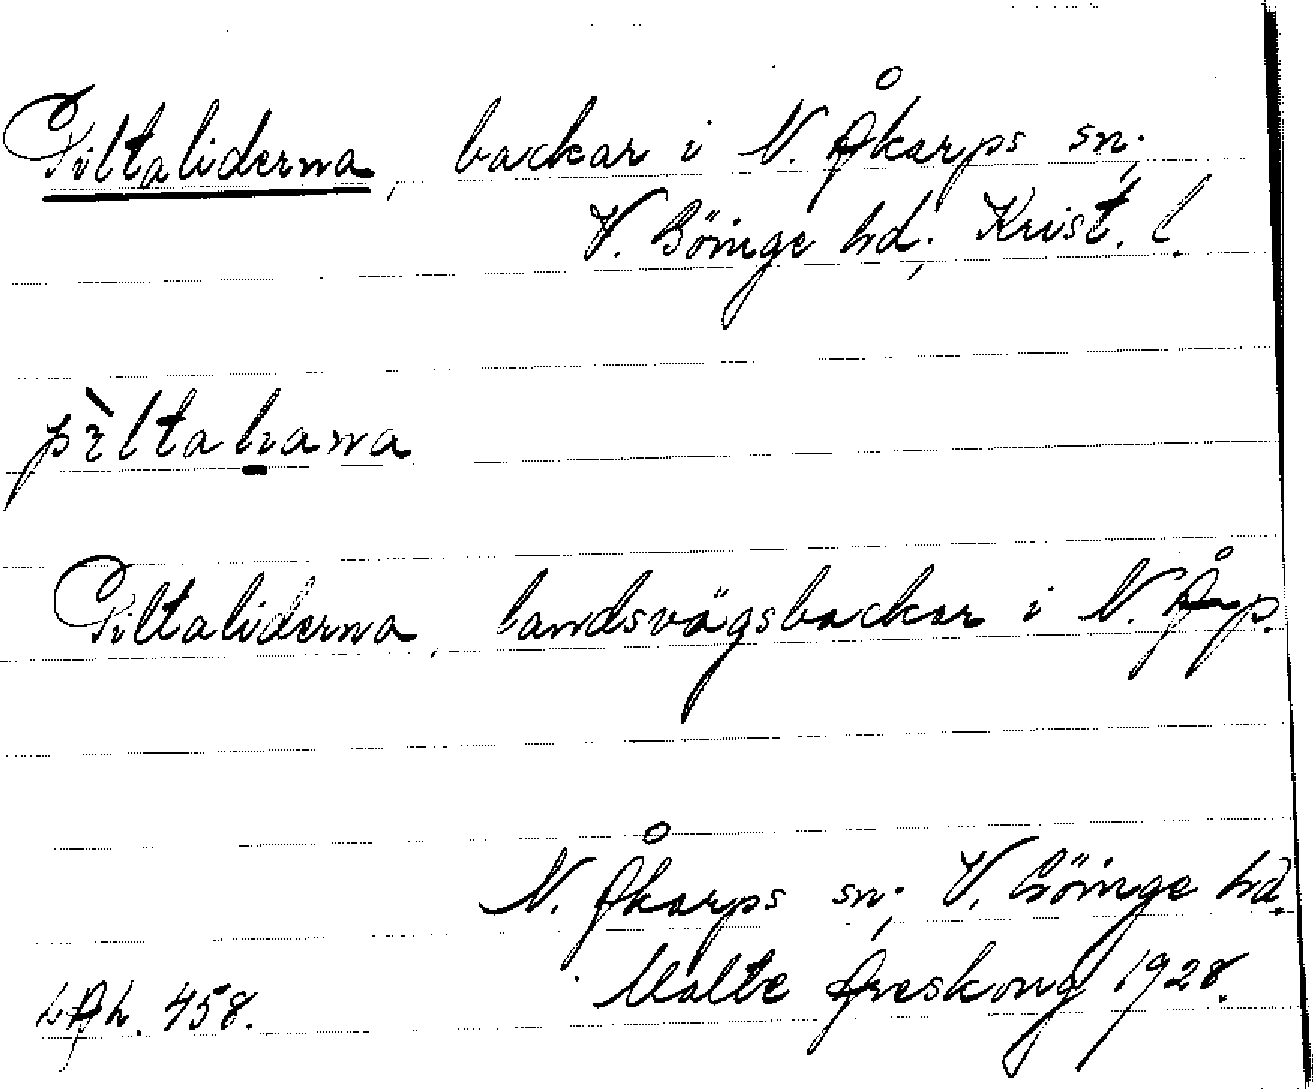 Piltaliderna, backar i N. Åkarps sn;
V. Göinge hd; Krist. l.
pìltaliana
Piltaliderna, landsvägsbackar i N. Åp.
N. Åkarps sn; V. Göinge hd.
Malte Areskoug 1928.
LAL. 458.